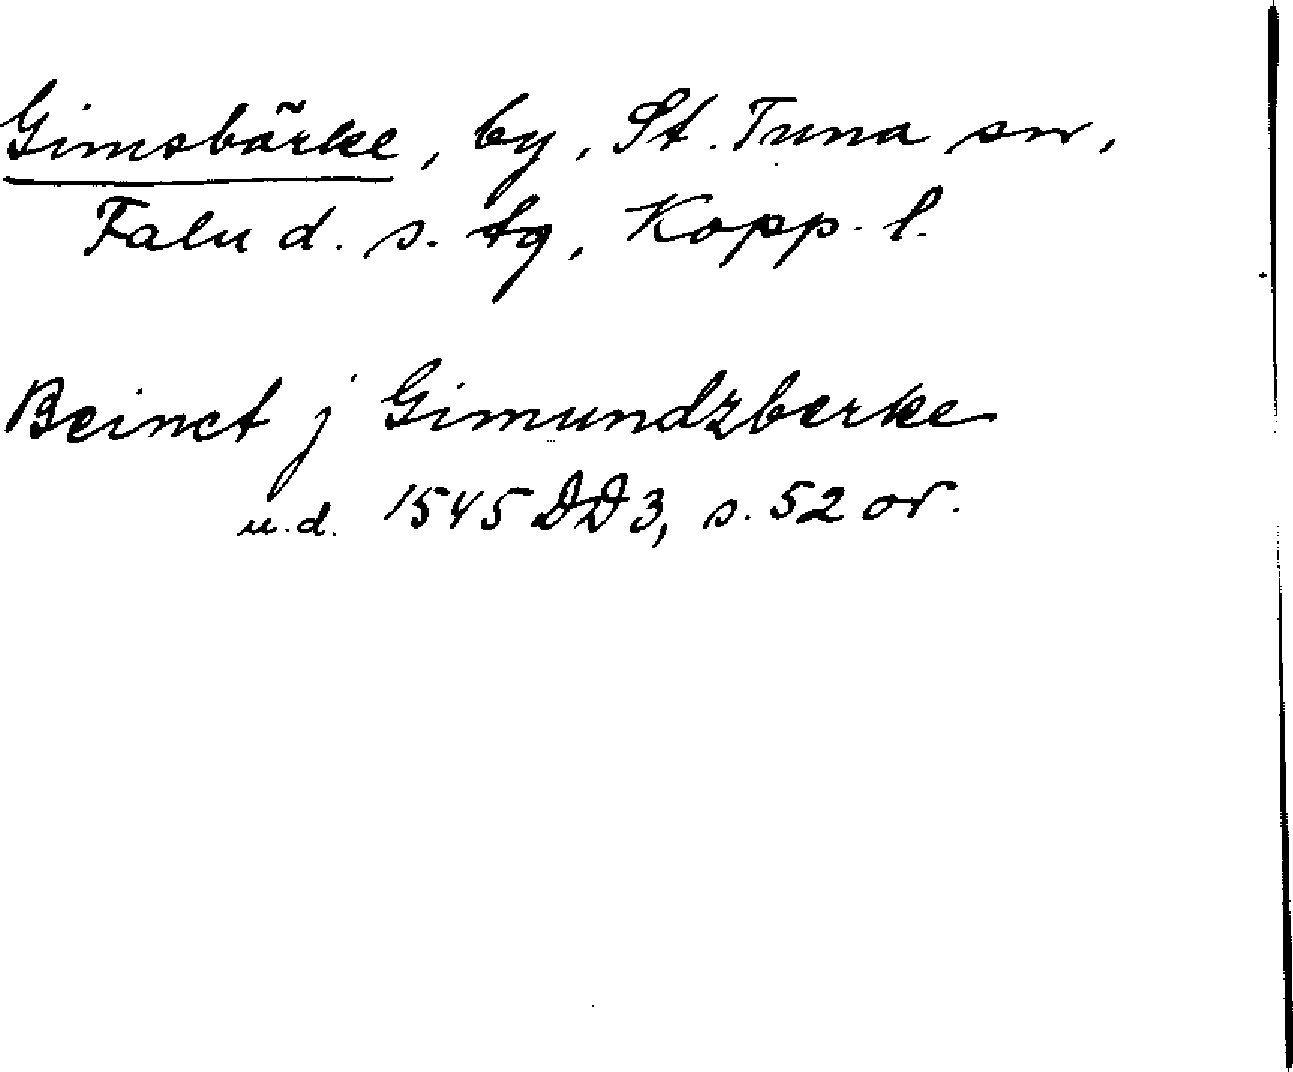 Gimsbärke, by, St. Tuna sn,
Falu d. s. tg, Kopp. l.
Beinct j Gimundzberke
u.d. 1545 DD 3, s. 52 or.